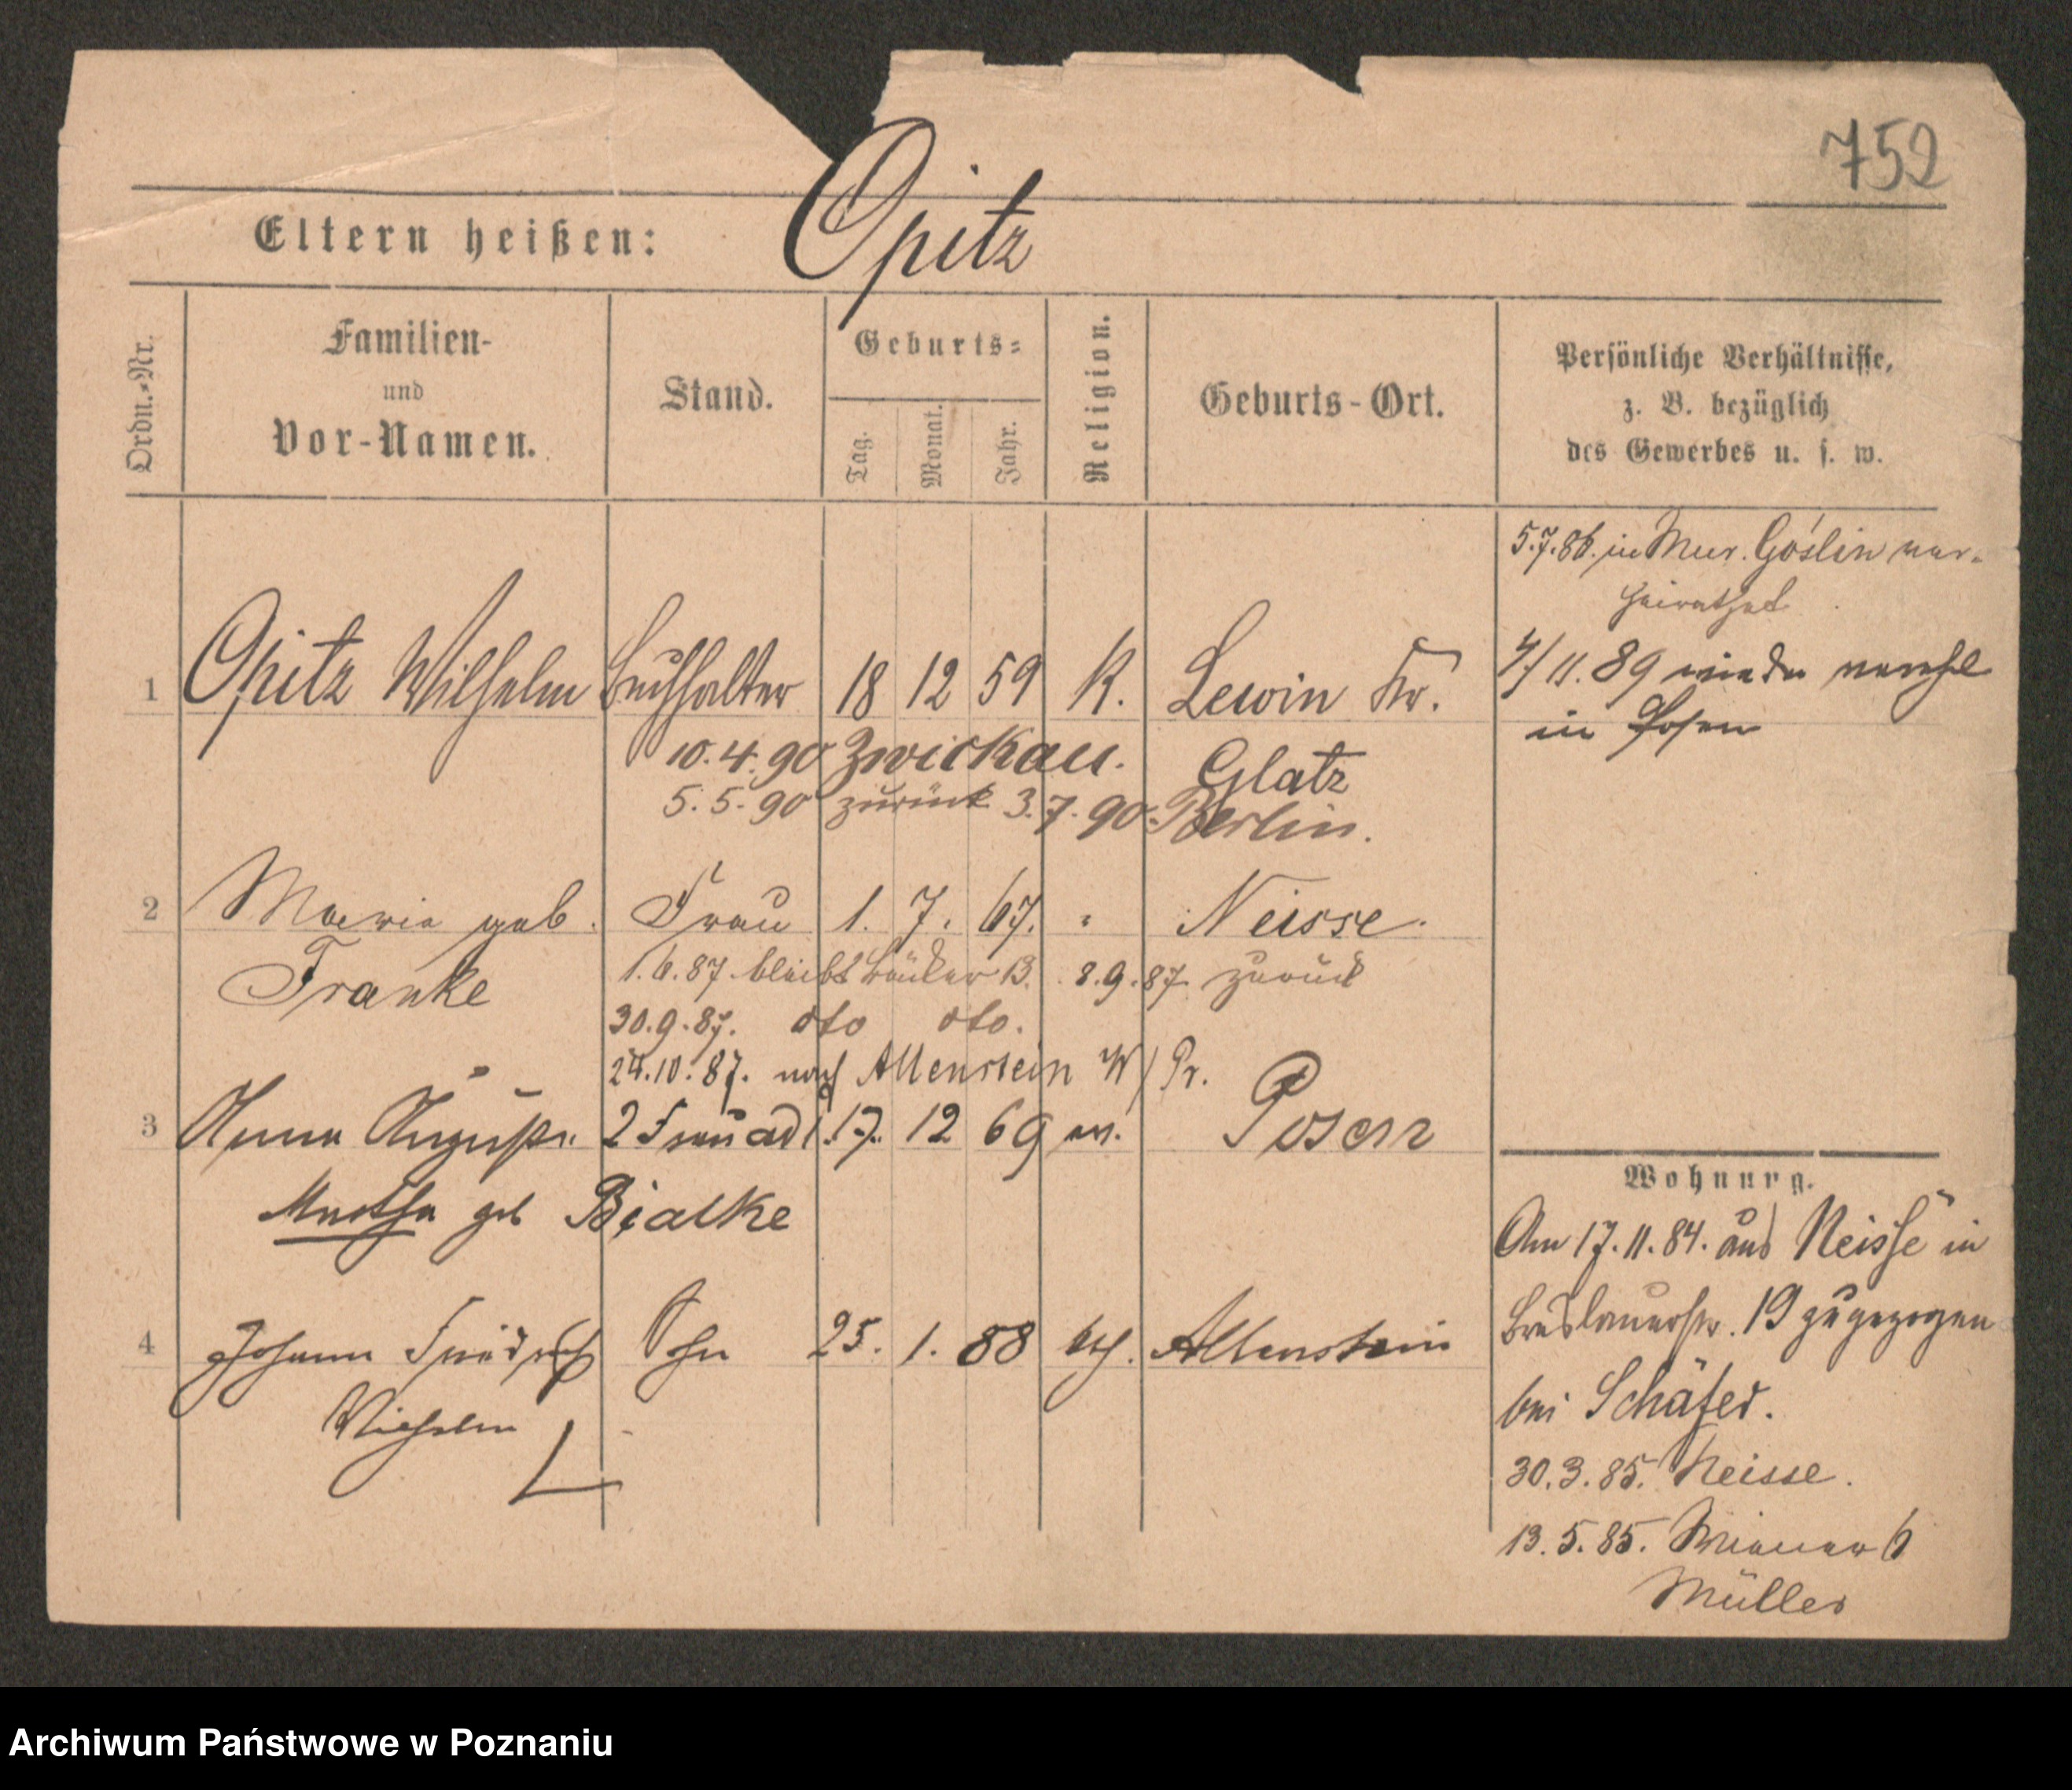 752
Eltern heißen: Opitz
Ordn.-Nr.
Familien-
und
Vor-Namen.
Stand.
Geburts-
Tag. Monat. Jahr.
Religion.
Geburts-Ort.
Persönliche Verhältnisse,
z. B. bezüglich
des Gewerbes u. s. w.
5.7.86. in Mur. Goslin ver-
heirathet
1 Opitz Wilhelm Buchhalter 18 12 59 K. Lewin Kr.
Glatz
4/11.89 wieder verehel
in Posen
10.4.90 Zwickau.
5.5.90 zurück 3.7.90. Berlin.
2 Maria geb. Frau 1. 7. 67. " Neisse.
Franke
1.6.87 bleibt 13. 8.9.87 zurück
30.9.87. dto dto.
24.10.87. nach Allenstein W/Pr.
3 Anna 2 Frau ad 1. 17. 12 69 ev. Posen
Martha geb Bialke
4 Johann Friedrich Sohn 25. 1. 88 Allenstein
Wilhelm
Wohnung.
Am 17.11.84. aus Neisse in
Breslauerstr. 19 zugezogen
bei Schäfer.
30.3.85. Neisse.
13.5.85. 6
Müller
Archiwum Państwowe w Poznaniu